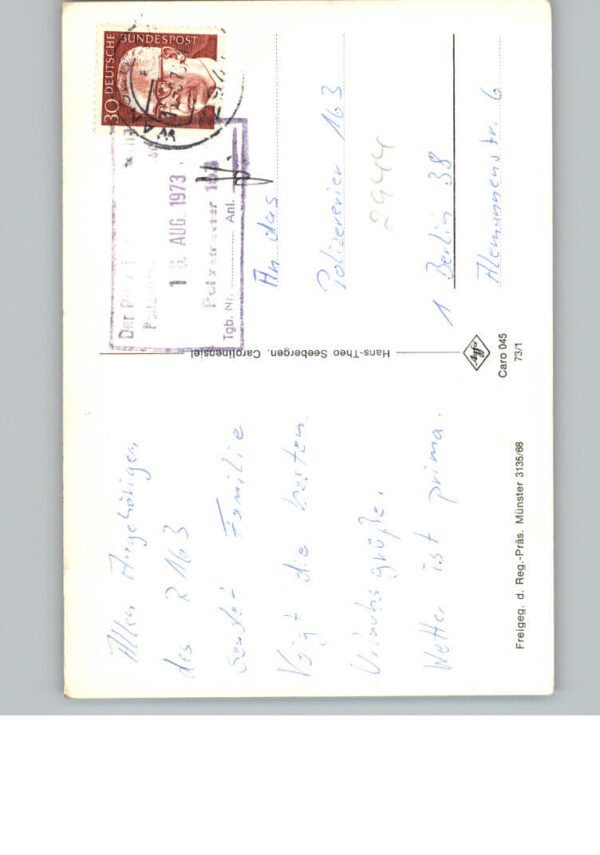 Allen Angehörigen
des R 163
sendet Familie
Voigt die besten
Urlaubsgrüße.
Wetter ist prima.
Freigeg. d. Reg.-Präs. Münster 3135/68
Hans-Theo Seebergen, Carolinensiel
Agfa
Caro 045
73/1
DEUTSCHE BUNDESPOST
30
AUG. 1973
Polizeirevier 163
Tgb. Nr. Anl.
An das
Polizeirevier 163
2944
1 Berlin 38
Alemannenstr. 6